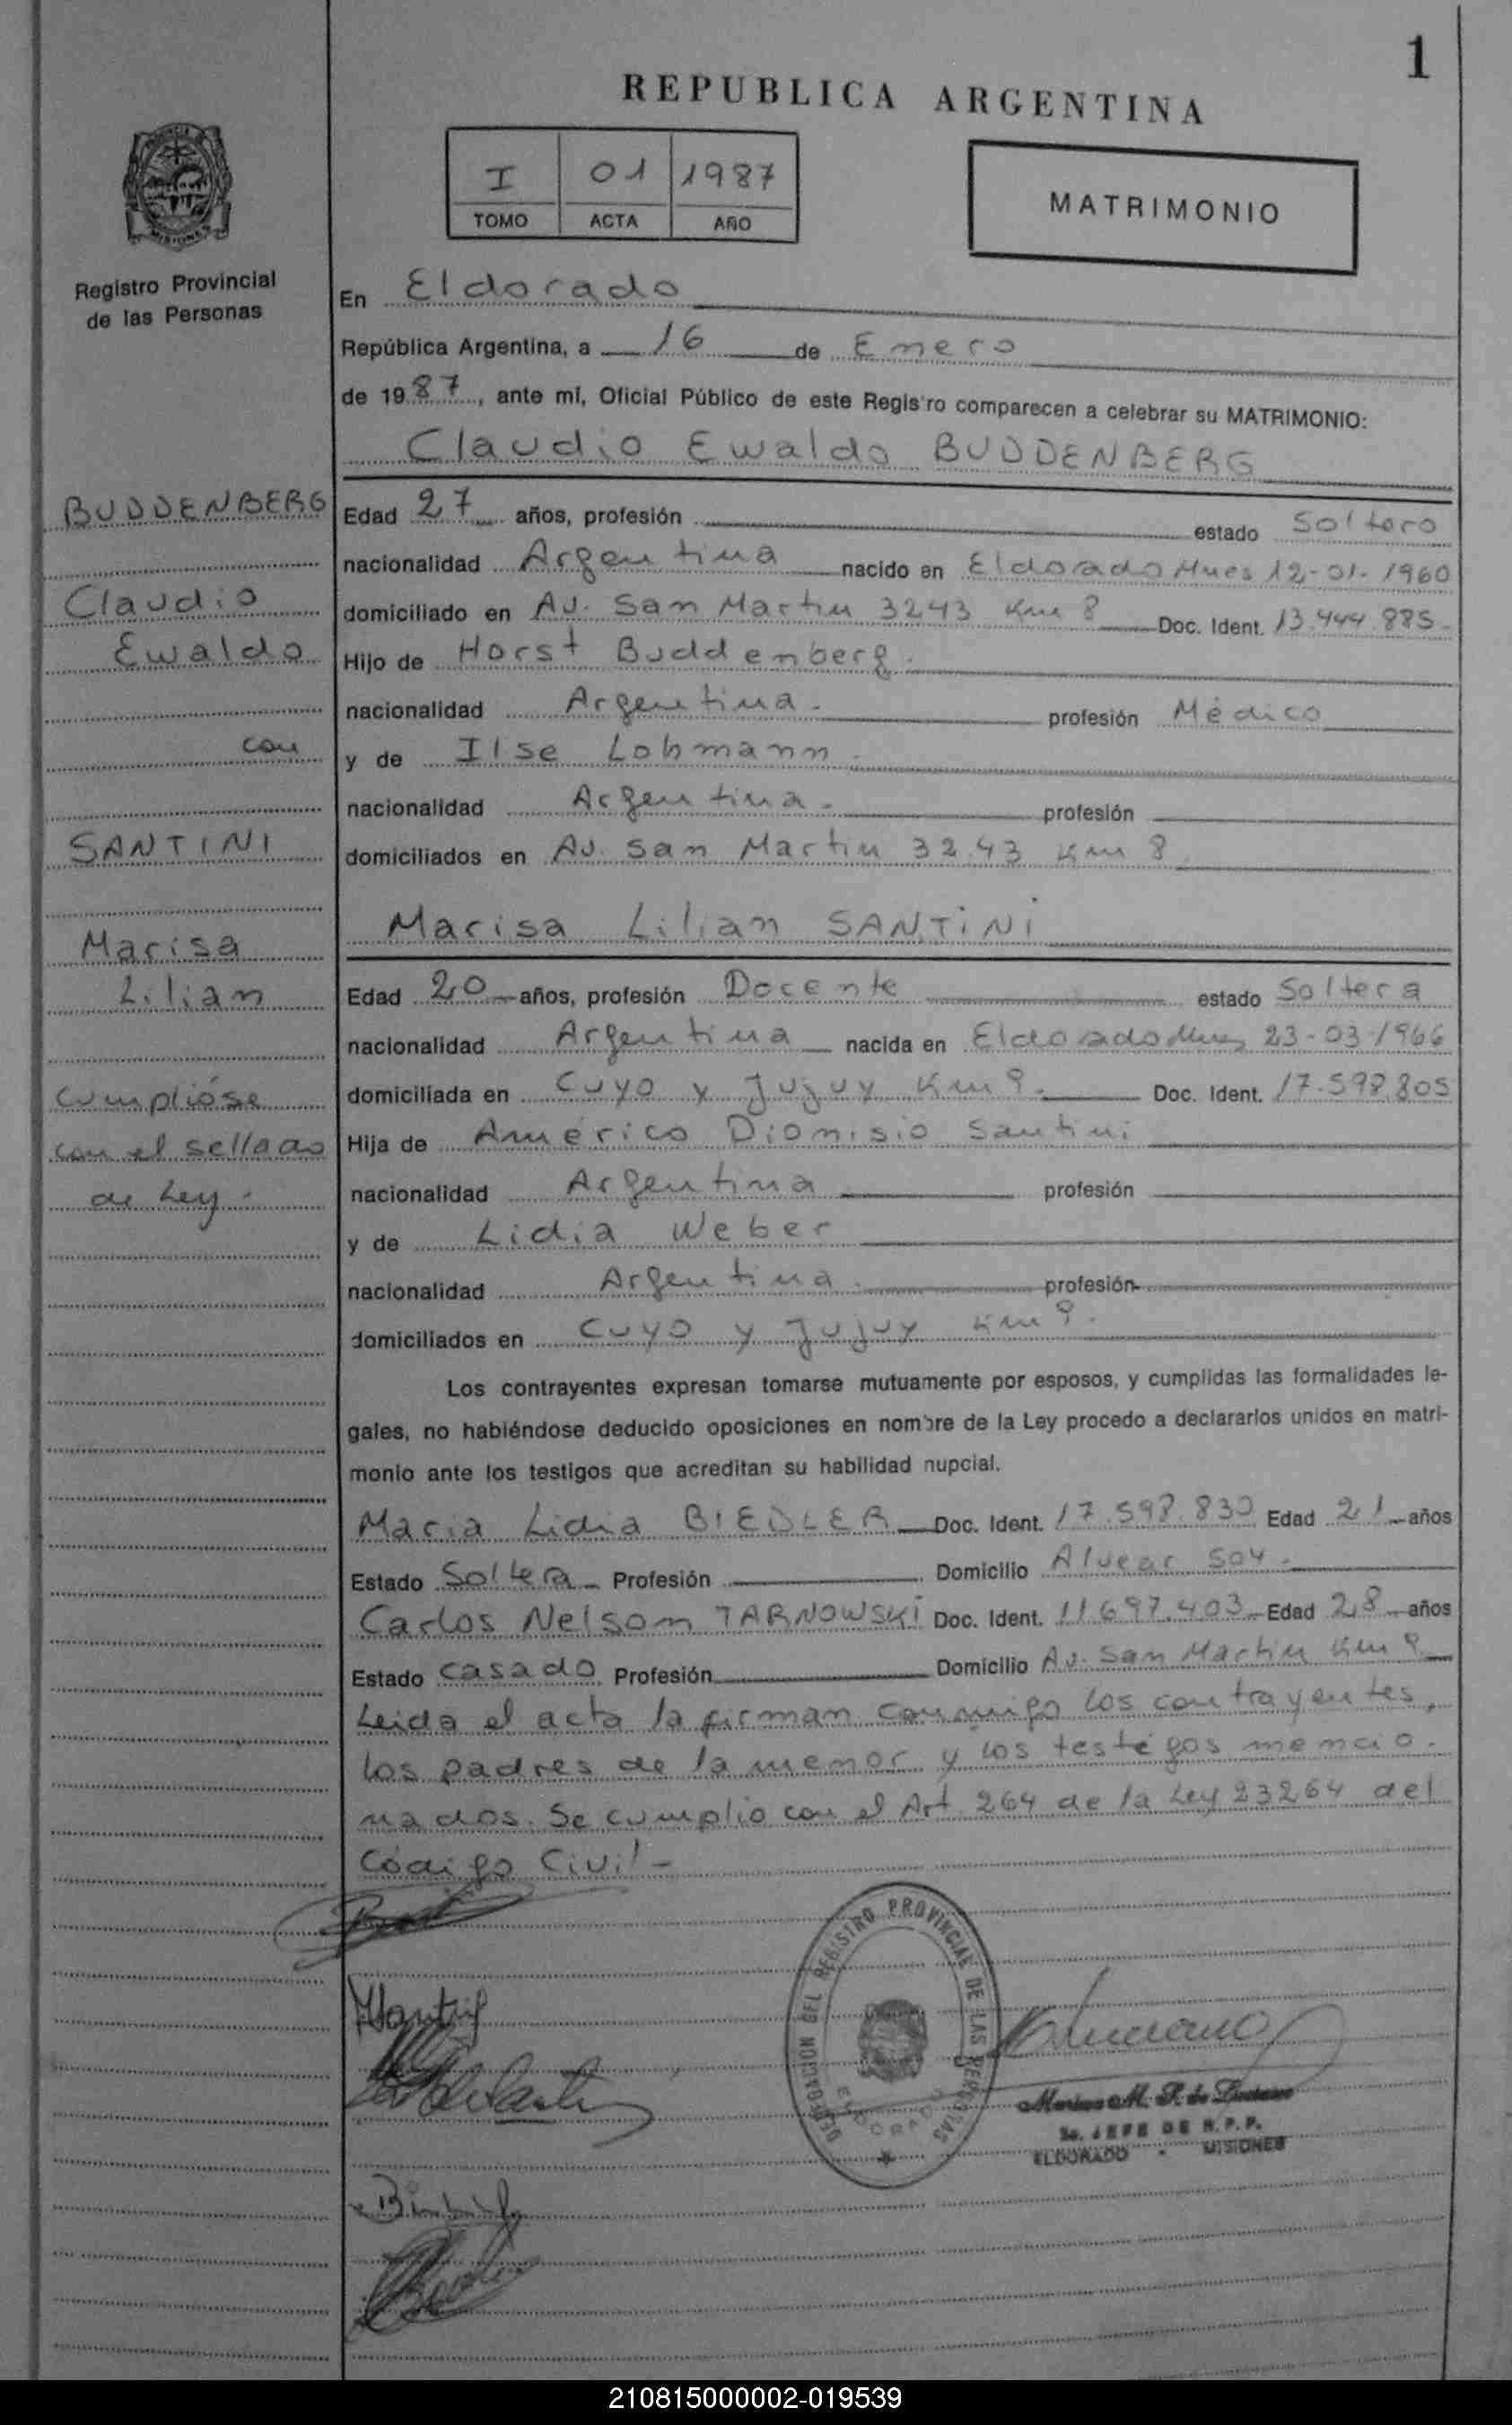 1
REPUBLICA ARGENTINA
I 01 1987
TOMO ACTA AÑO
MATRIMONIO
MISIONES
Registro Provincial
de las Personas
En Eldorado
República Argentina, a 16 de Enero
de 1987, ante mí, Oficial Público de este Registro comparecen a celebrar su MATRIMONIO:
Claudio Ewaldo BUDDENBERG
BUDDENBERG
Claudio
Ewaldo
con
SANTINI
Marisa
Lilian
cumplióse
con el sellado
de Ley.
Edad 27 años, profesión estado Soltero
nacionalidad Argentina nacido en Eldorado Mnes 12-01-1960
domiciliado en Av. San Martin 3243 Km 8 Doc. Ident. 13.444.885.
Hijo de Horst Buddenberg.
nacionalidad Argentina. profesión Médico
y de Ilse Lohmann.
nacionalidad Argentina. profesión
domiciliados en Av. San Martin 32.43 Km 8
Marisa Lilian SANTINI
Edad 20 años, profesión Docente estado Soltera
nacionalidad Argentina nacida en Eldorado Mnes 23-03-1966
domiciliada en Cuyo y Jujuy Km 9. Doc. Ident. 17.598.805
Hija de Américo Dionisio Santini
nacionalidad Argentina profesión
y de Lidia Weber
nacionalidad Argentina. profesión
domiciliados en Cuyo y Jujuy Km 9.
Los contrayentes expresan tomarse mutuamente por esposos, y cumplidas las formalidades le-
gales, no habiéndose deducido oposiciones en nombre de la Ley procedo a declararlos unidos en matri-
monio ante los testigos que acreditan su habilidad nupcial.
Maria Lidia BIEDLER Doc. Ident. 17.598.830 Edad 21 años
Estado Soltera Profesión Domicilio Alvear 504.
Carlos Nelson TARNOWSKI Doc. Ident. 11.697.403 Edad 28 años
Estado Casado Profesión Domicilio Av. San Martin Km 9
Leida el acta la firman conmigo los contrayentes,
los padres de la menor y los testigos mencio-
nados. Se cumplio con el Art. 264 de la Ley 23264 del
Código Civil-
DELEGACION DEL REGISTRO PROVINCIAL DE LAS PERSONAS
ELDORADO
JEFE DE R.P.P.
ELDORADO - MISIONES
210815000002-019539